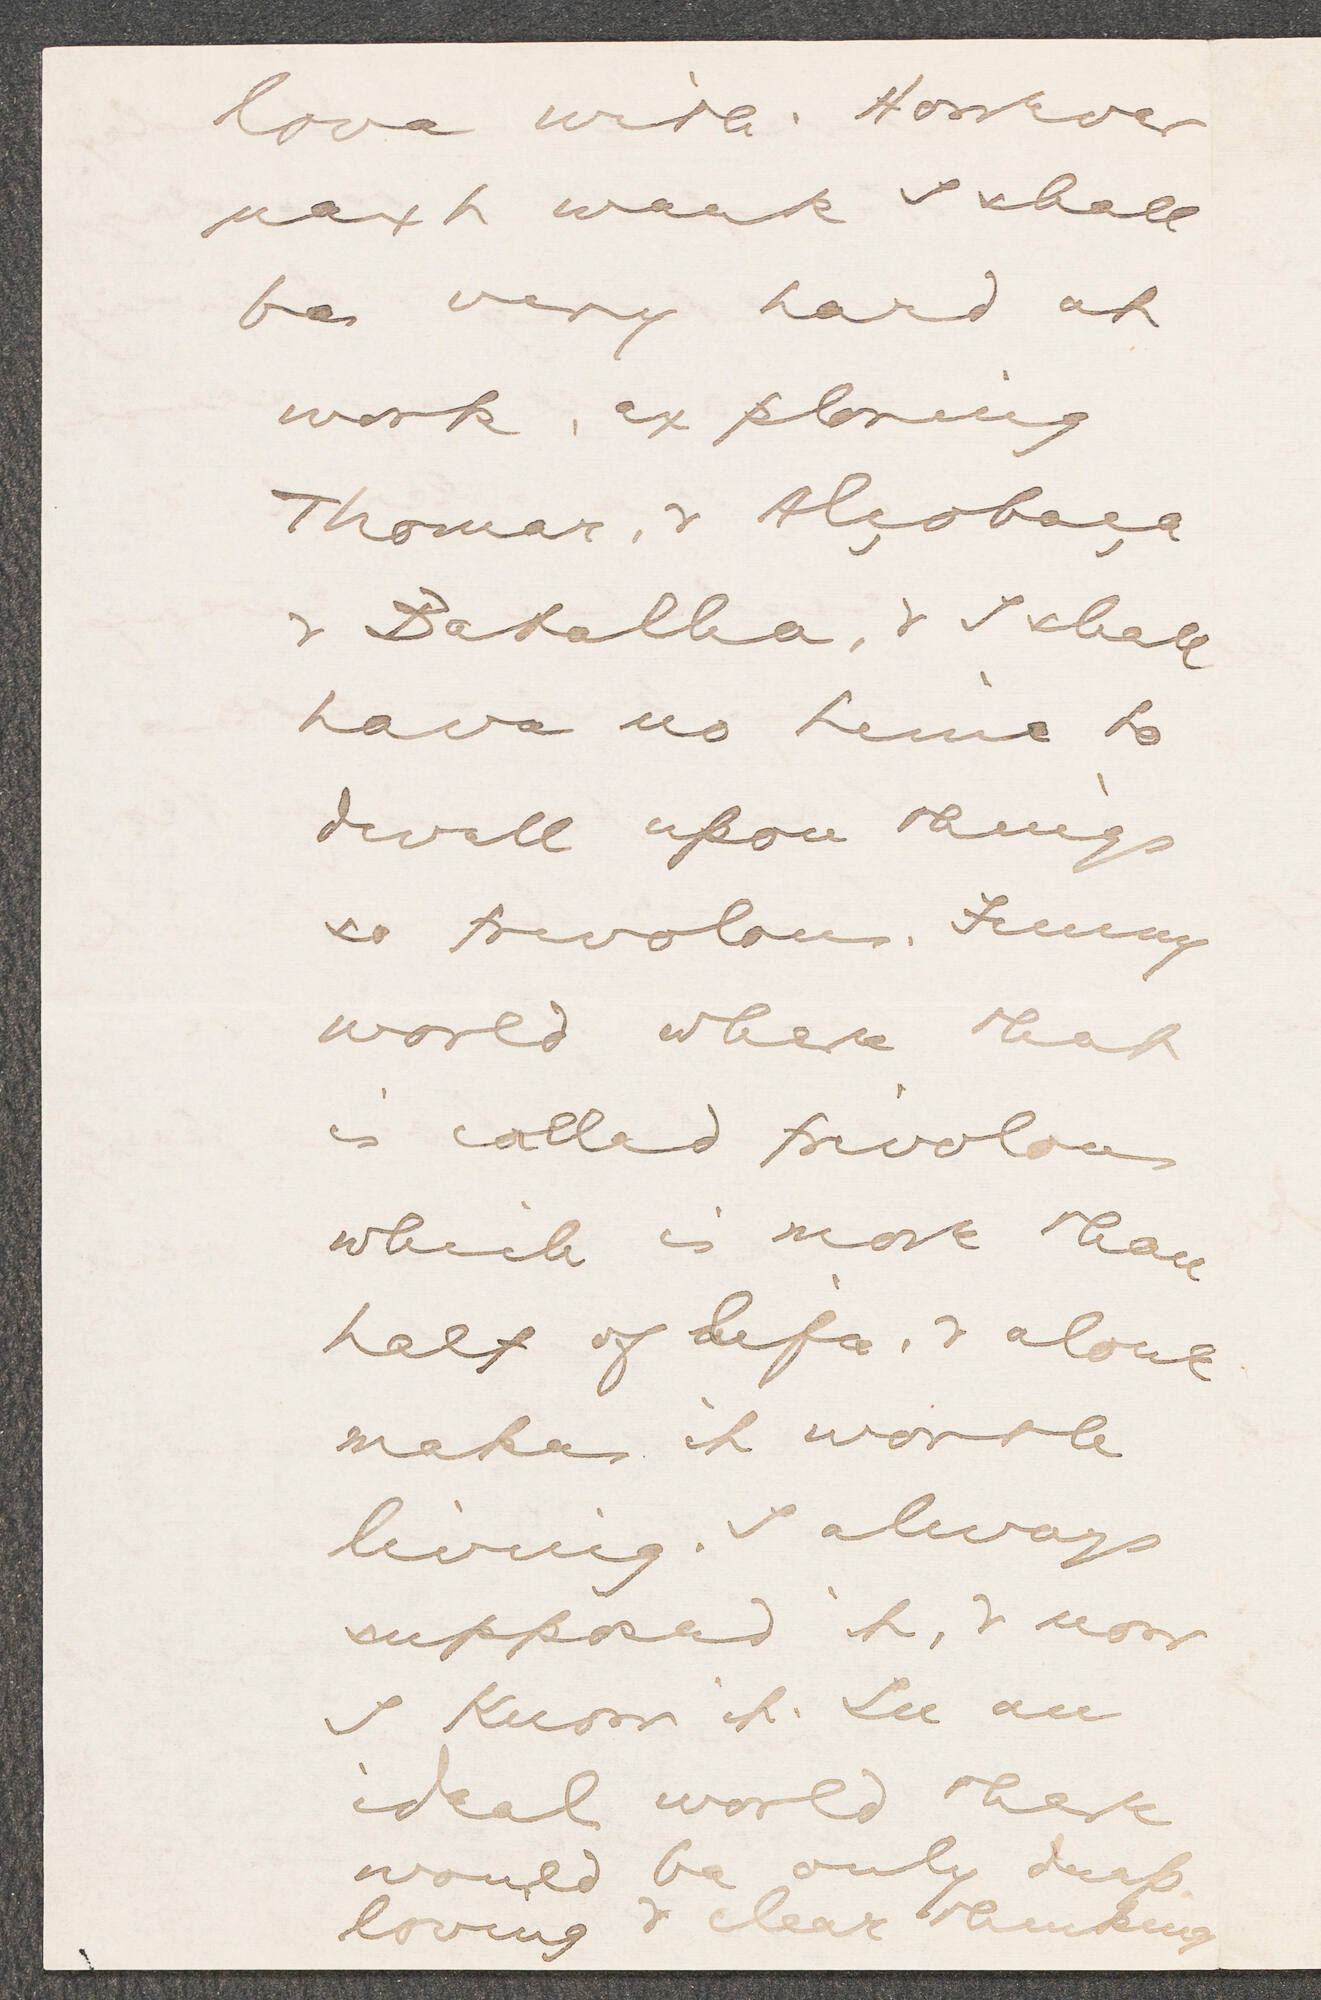 love with. However
next week I shall
be very hard at
work, exploring
Thomar, & Alçobaça
& Batalha, & I shall
have no time to
dwell upon things
so frivolous. Funny
world where that
is called frivolous
which is more than
half of life, & alone
makes it worth
living. I always
supposed it, & now
I know it. In an
ideal world there
would be only deep
loving & clear thinking